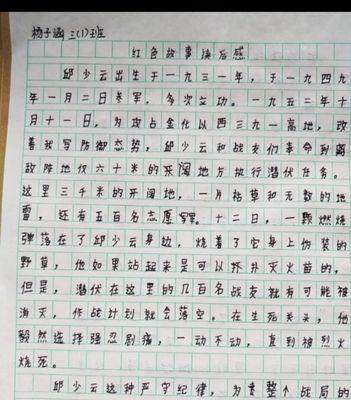 杨子涵 三(1)班
红色故事读后感
邱少云出生于一九三一年，于一九四九
年一月二日参军，多次立功。一九五二年十
月十一日，为攻占金化以西三九一高地，改
善我军防御态势，邱少云和战友们奉令到距
敌阵地仅六十米的开阔地方执行潜伏任务。
这里三千米的开阔地，一片枯草和无数的地
雷，还有五百名志愿军。十二日，一颗燃烧
弹落在了邱少云身边，烧着了它身上伪装的
野草，他如果站起来是可以扑灭火苗的。
但是，潜伏在这里的几百名战友就有可能被
消灭，作战计划就会落空。在生死关头，他
毅然选择强忍剧痛，一动不动，直到被烈火
烧死。
邱少云这种严守纪律，为整个战局的